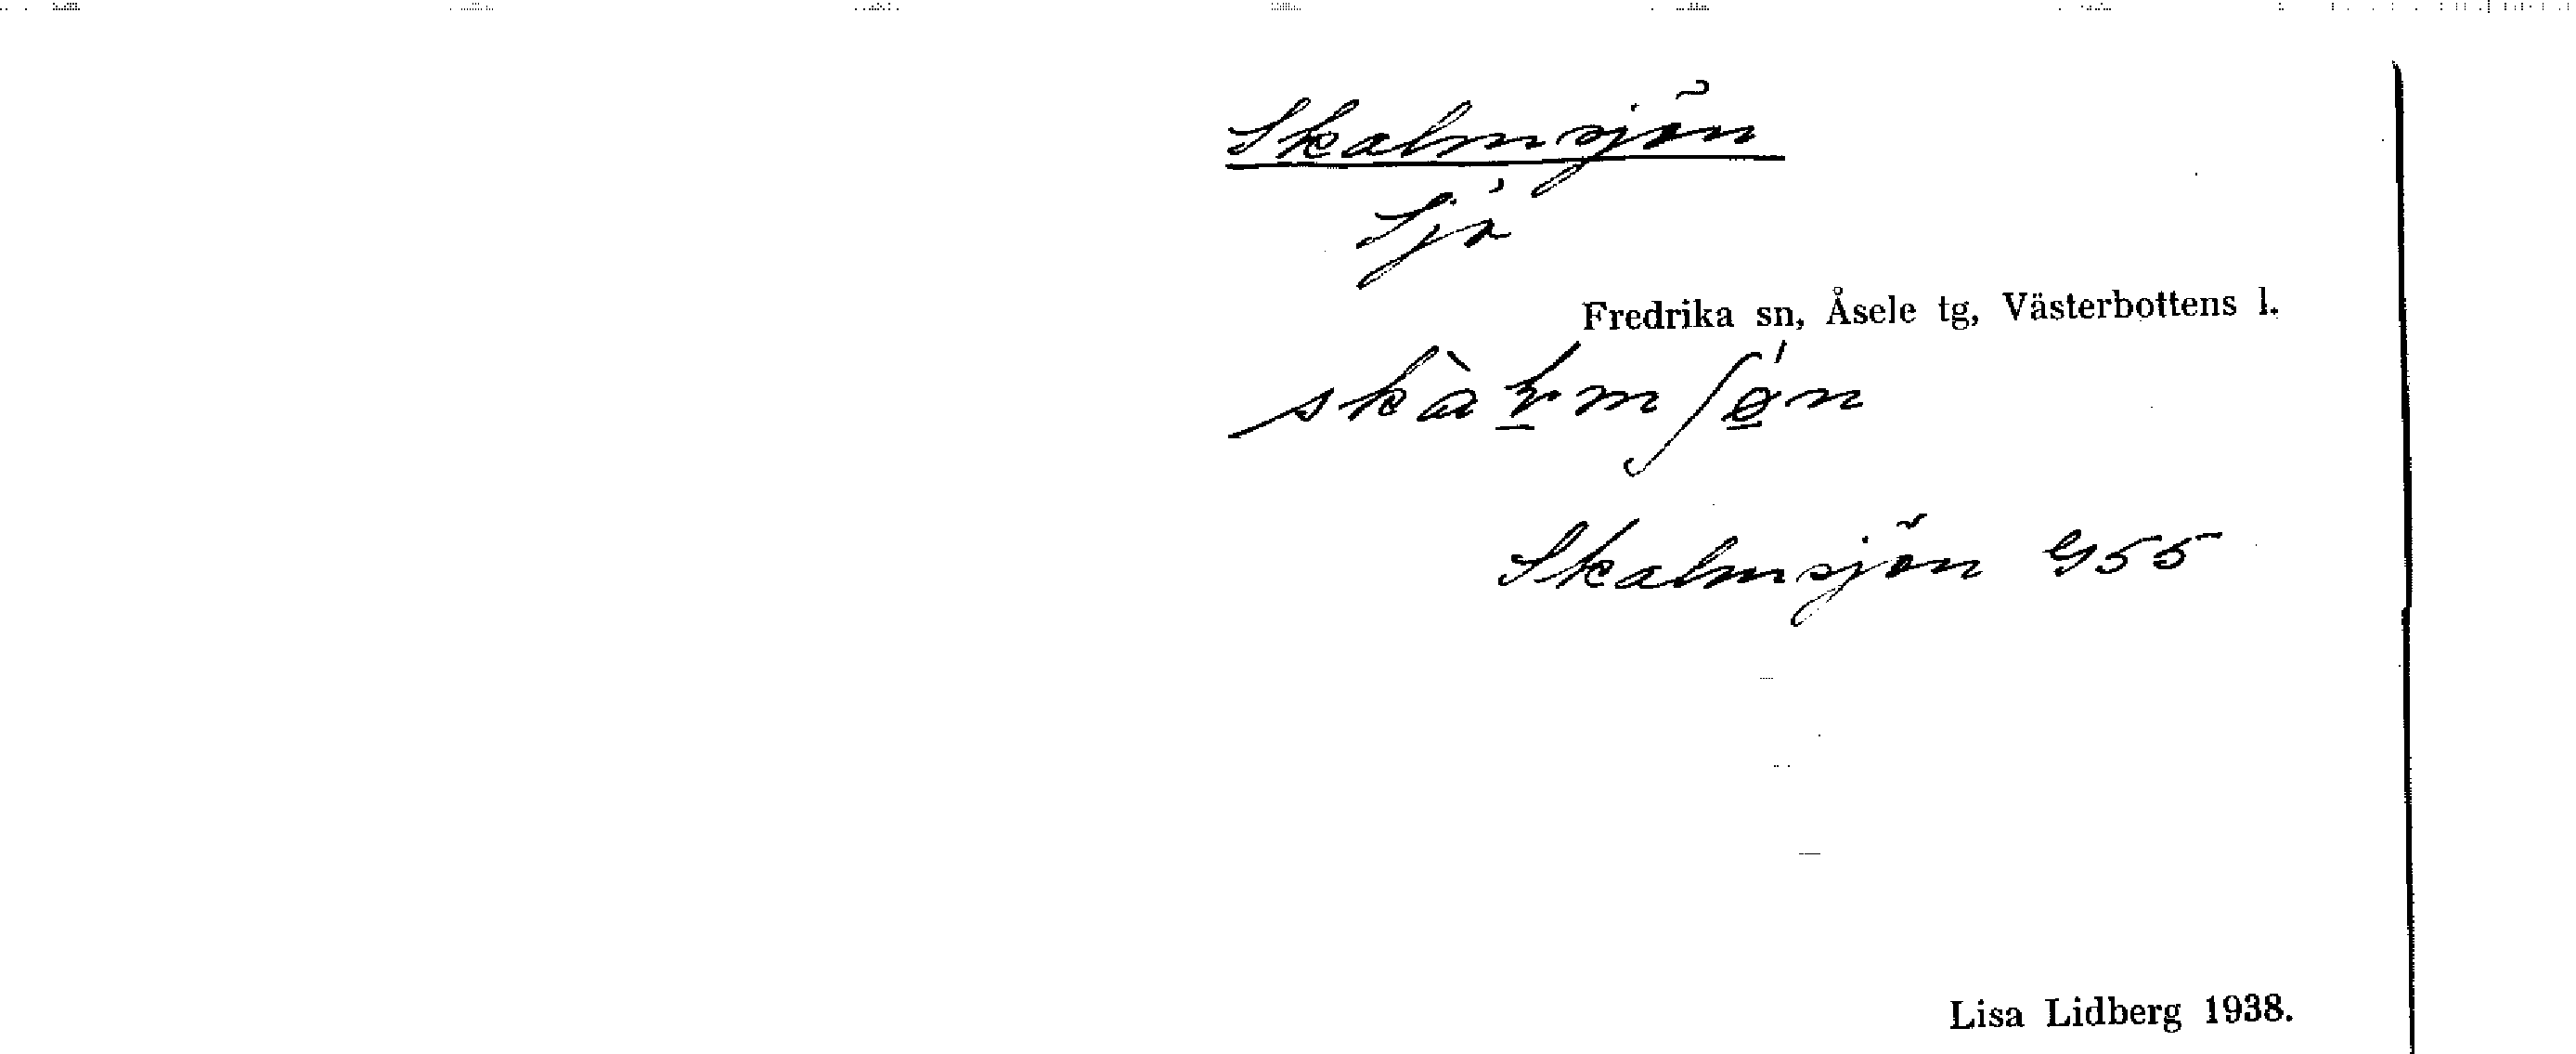 Skalmsjön
Sjö
Fredrika sn, Åsele tg, Västerbottens l.
Skalmsjön G55
Lisa Lidberg 1938.